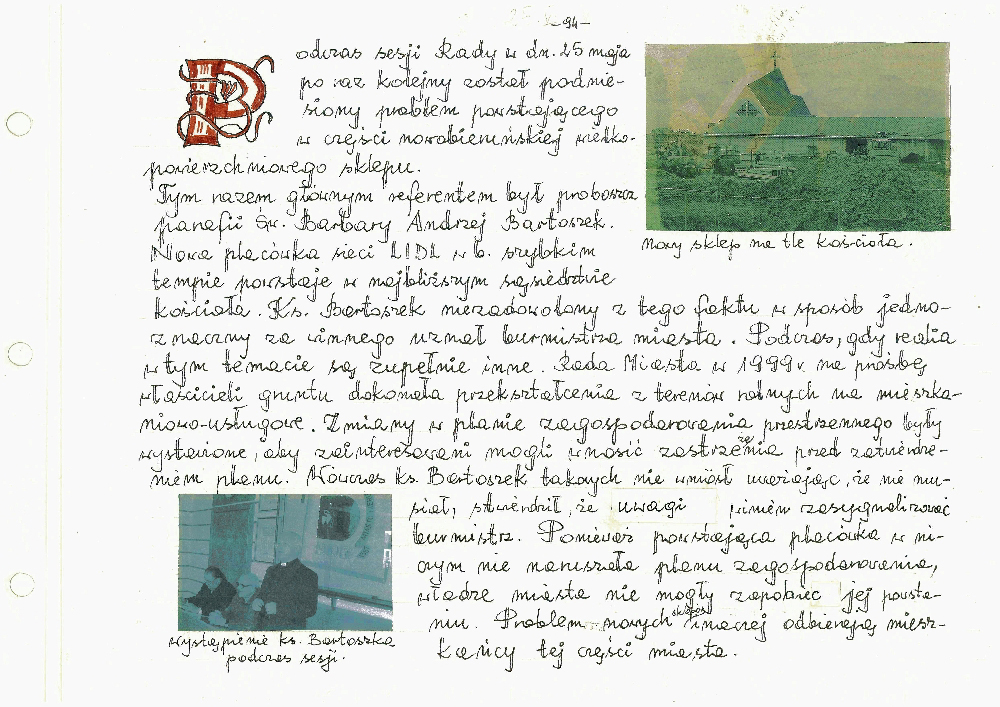 -94-
Podczas sesji Rady w dn. 25 maja
po raz kolejny został podnie-
siony problem powstającego
w części nowobieruńskiej wielko-
powierzchniowego sklepu.
Tym razem głównym referentem był proboszcz
parafii św. Barbary Andrzej Bartoszek.
Nowa placówka sieci LIDL w b. szybkim
tempie powstaje w najbliższym sąsiedztwie
kościoła. Ks. Bartoszek niezadowolony z tego faktu w sposób jedno-
znaczny za winnego uznał burmistrza miasta. Podczas, gdy realia
w tym temacie są zupełnie inne. Rada Miasta w 1999r. na prośbę
właścicieli gruntu dokonała przekształcenia z terenów rolnych na mieszka-
niowo-usługowe. Zmiany w planie zagospodarowania przestrzennego były
wystawione, aby zainteresowani mogli wnosić zastrzeżenia przed zatwierdze-
niem planu. Wówczas ks. Bartoszek takowych nie wniósł uważając, że nie mu-
siał, stwierdził, że uwagi winien zasygnalizować
burmistrz. Ponieważ powstająca placówka w ni-
czym nie naruszała planu zagospodarowania,
władze miasta nie mogły zapobiec jej powsta-
niu. Problem nowych sklepów inaczej odbierają miesz-
kańcy tej części miasta.
Nowy sklep na tle kościoła.
wystąpienie ks. Bartoszka
podczas sesji.